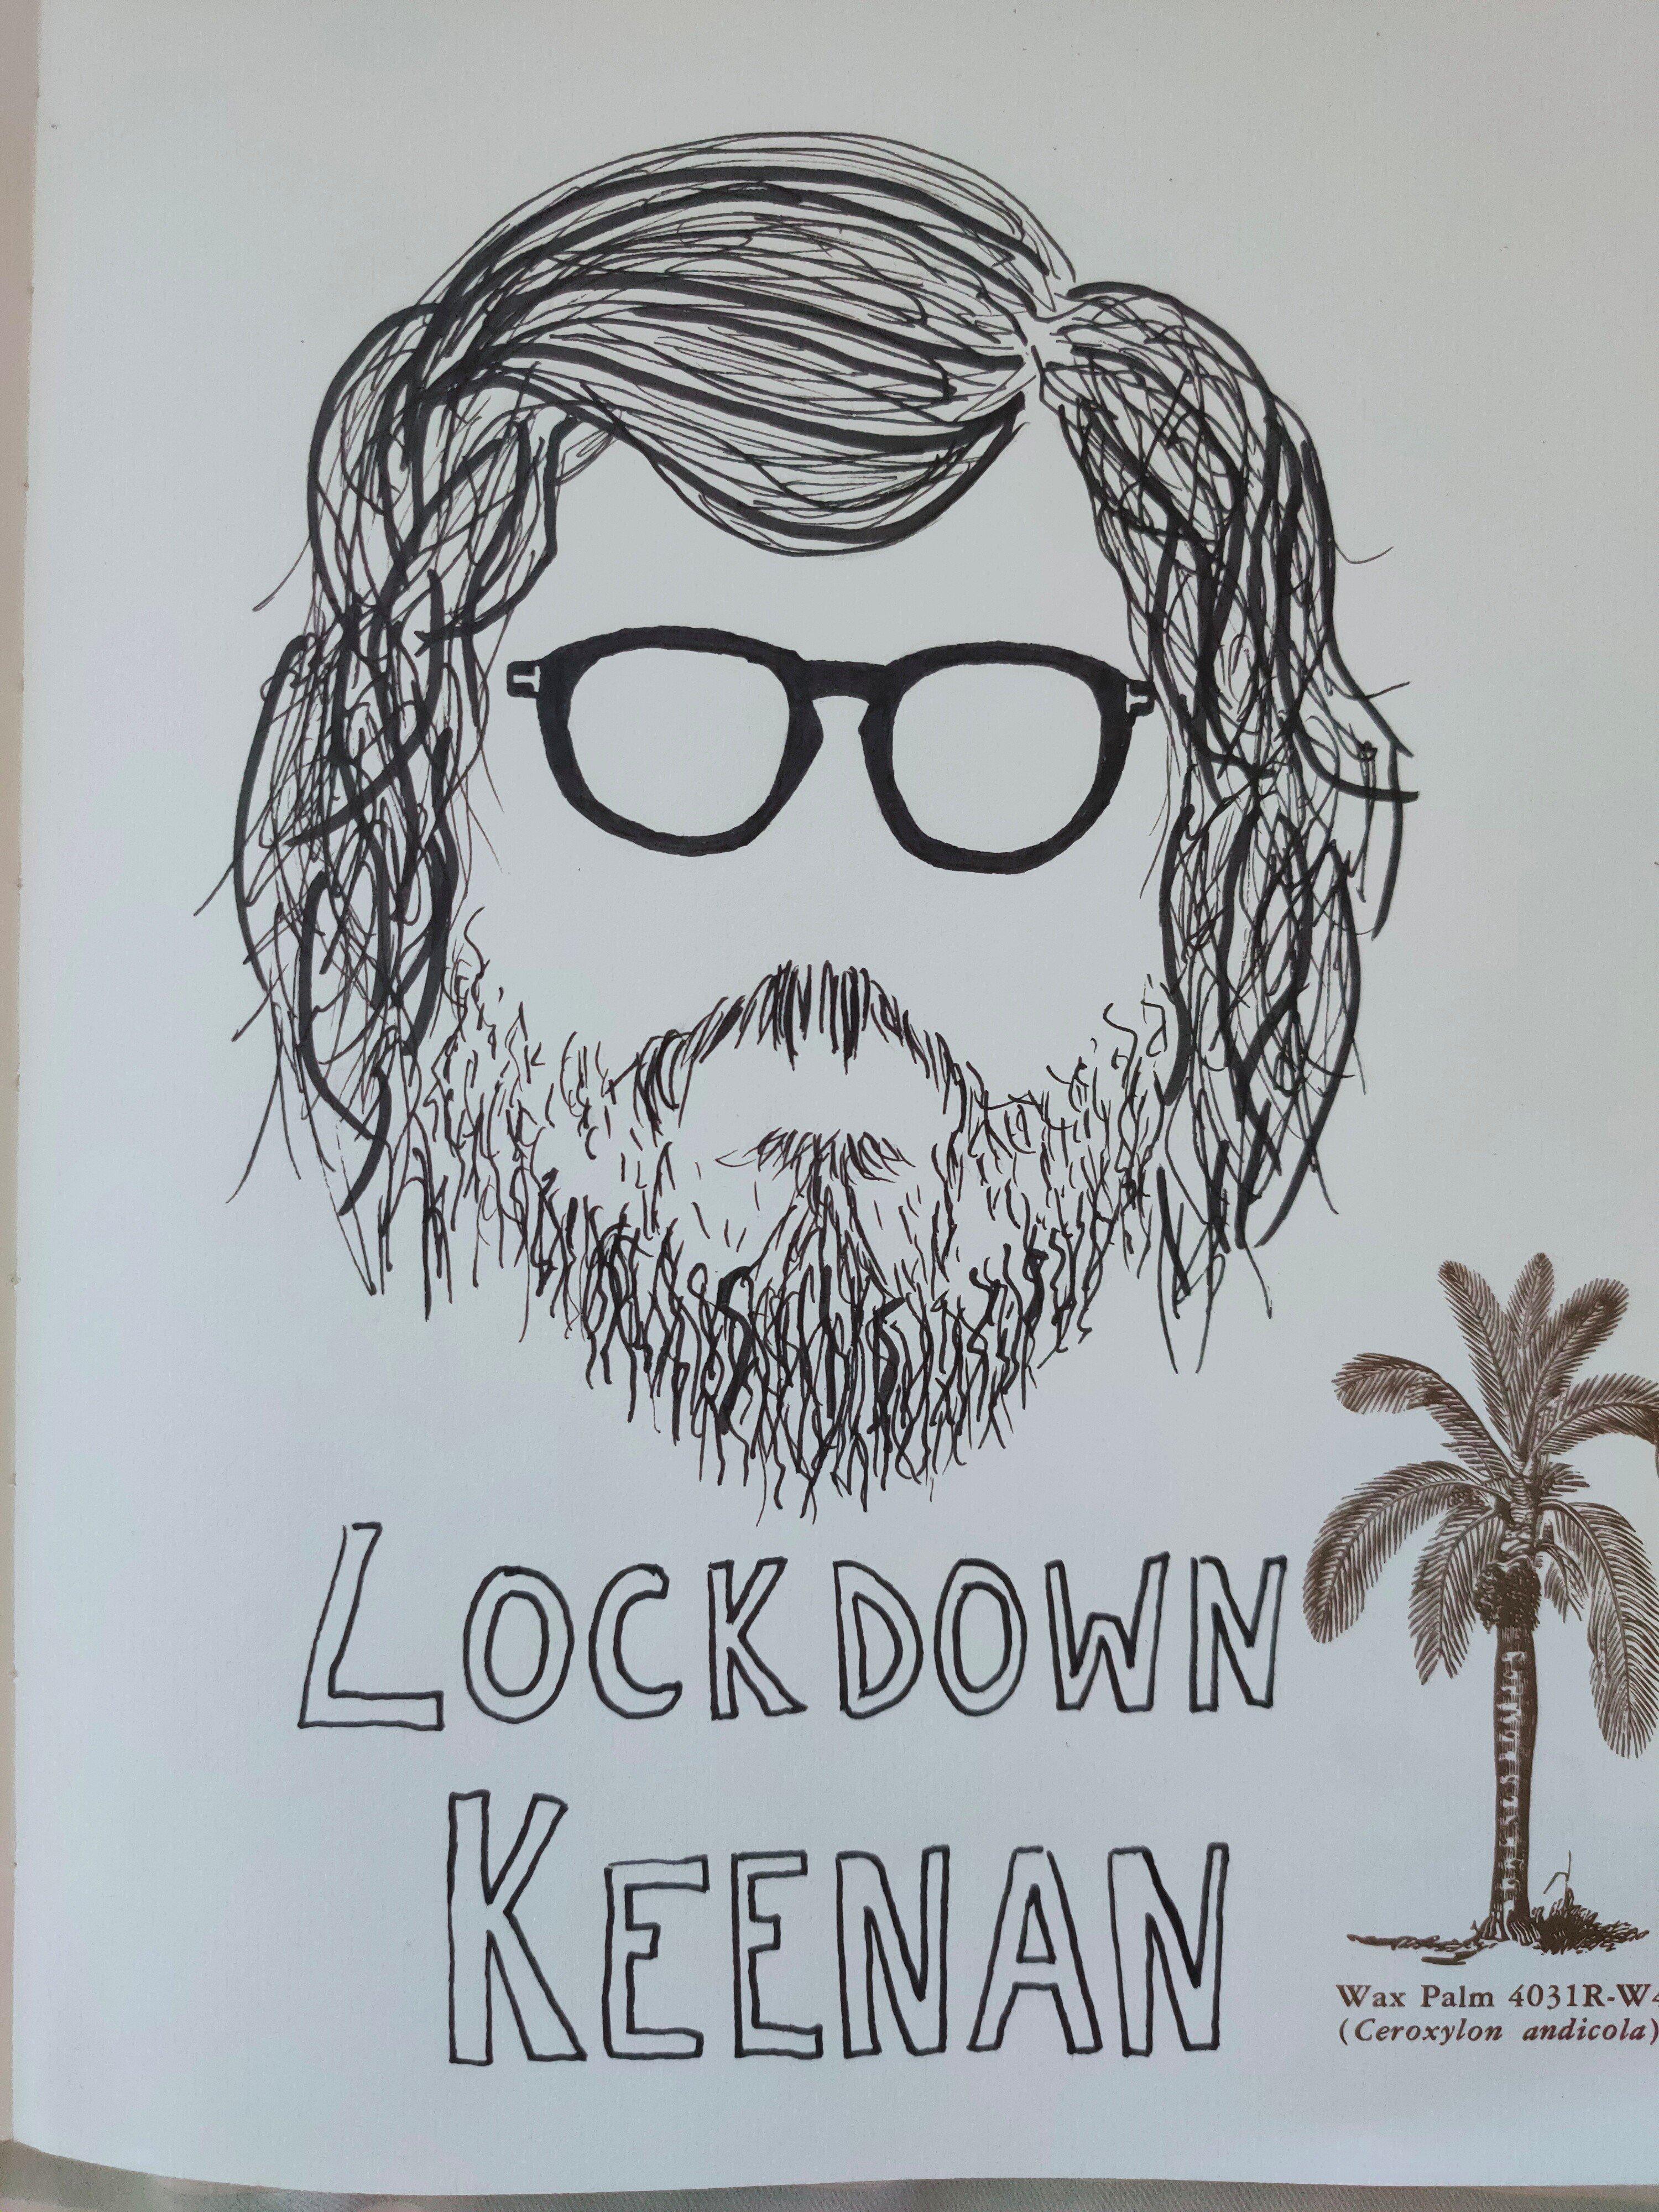 LOCKDOWN
KEENAN
Wax Palm 4031R-W4
(Ceroxylon andicola)